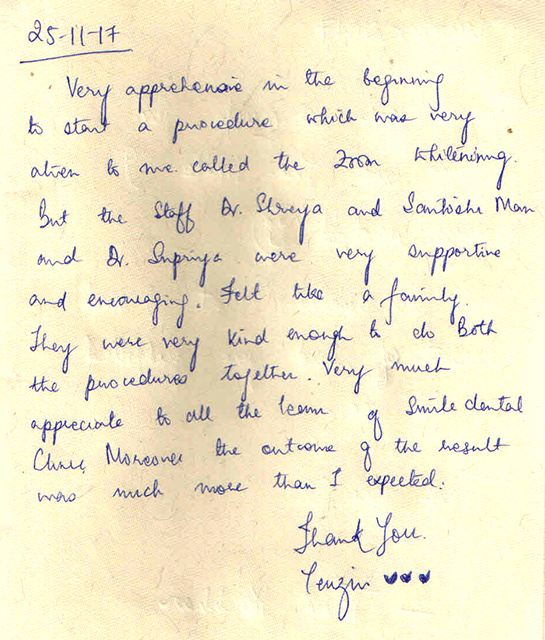 25-11-17
Very apprehensive in the beginning
to start a procedure which was very
alien to me called the Zoom Whitening.
But the Staff Dr. Shreya and Santoshi Mam
and Dr. Supriya were very supportive
and encouraging. Felt like a family.
They were very kind enough to do Both
the procedures together. Very much
appreciate to all the team of Smile dental
Clinic, Moreover the outcome of the result
was much more than I expected.
Thank You.
Tenzin